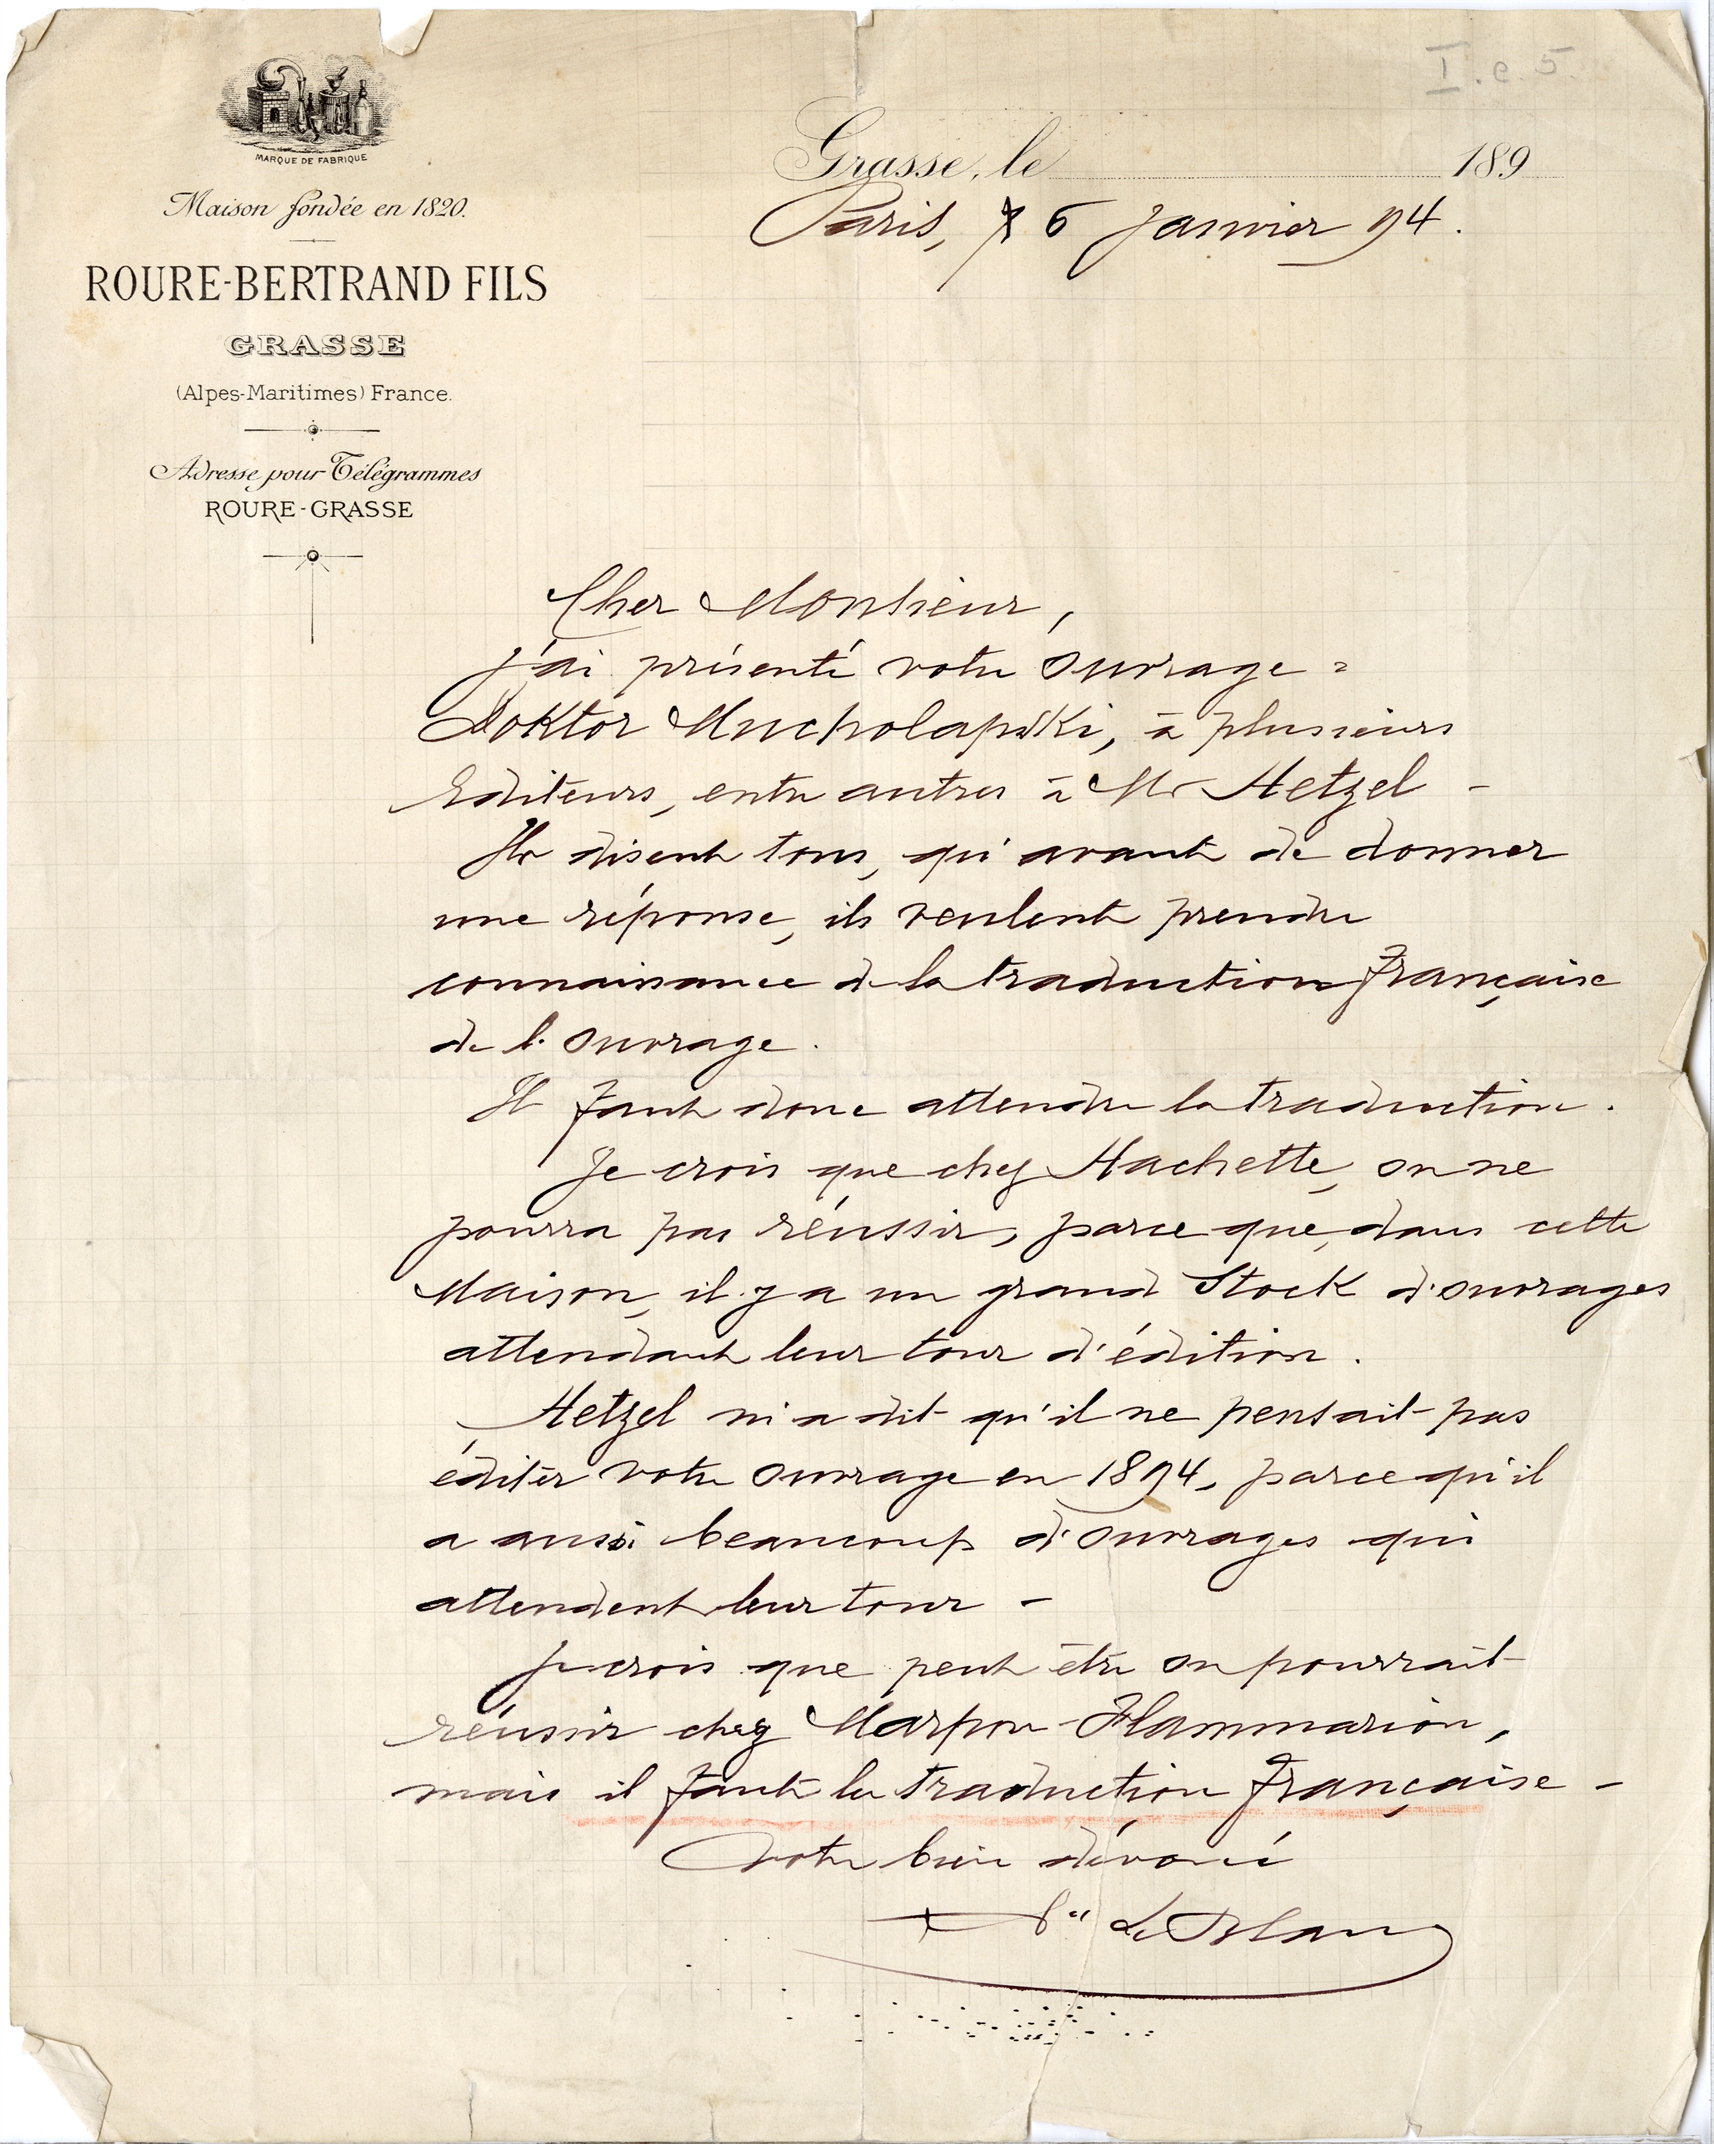 I.e.5.
MARQUE DE FABRIQUE
Maison fondée en 1820.
ROURE-BERTRAND FILS
GRASSE
(Alpes-Maritimes) France.
Adresse pour Télégrammes
ROURE-GRASSE
Grasse, le 189
Paris, 6 Janvier 94.
Cher Monsieur,
J'ai présenté votre ouvrage =
Doktor Mucholapski, à plusieurs
Editeurs, entre autres à Mr Hetzel -
Ils disent tous, qu'avant de donner
une réponse, ils veulent prendre
connaissance de la traduction Française
de l'ouvrage.
Il faut donc attendre la traduction.
Je crois que chez Hachette, on ne
pourra pas réussir, parce que, dans cette
Maison, il y a un grand Stock d'ouvrages
attendant leur tour d'édition.
Hetzel m'a dit qu'il ne pensait pas
éditer votre ouvrage en 1894, parce qu'il
a aussi beaucoup d'ouvrages qui
attendent leur tour -
Je crois que peut être on pourrait
réussir chez Marpon-Flammarion,
mais il faut la traduction Française -
Votre bien dévoué
Le Blanc